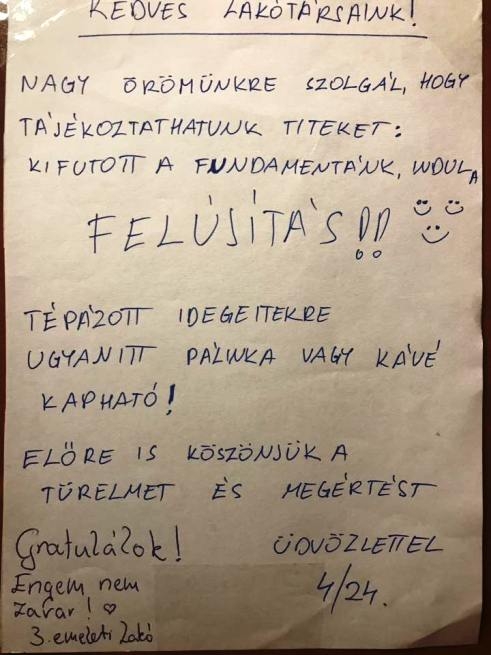 KEDVES LAKÓTÁRSAINK!
NAGY ÖRÖMÜNKRE SZOLGÁL, HOGY
TÁJÉKOZTATHATUNK TITEKET:
KIFUTOTT A FUNDAMENTÁNK, INDUL A
FELÚJÍTÁS!!
TÉPÁZOTT IDEGEITEKRE
UGYANITT PÁLINKA VAGY KÁVÉ
KAPHATÓ!
ELŐRE IS KÖSZÖNJÜK A
TÜRELMET ÉS MEGÉRTÉST
ÜDVÖZLETTEL
4/24.
Gratulálok!
Engem nem
zavar! ♡
3. emeleti lakó